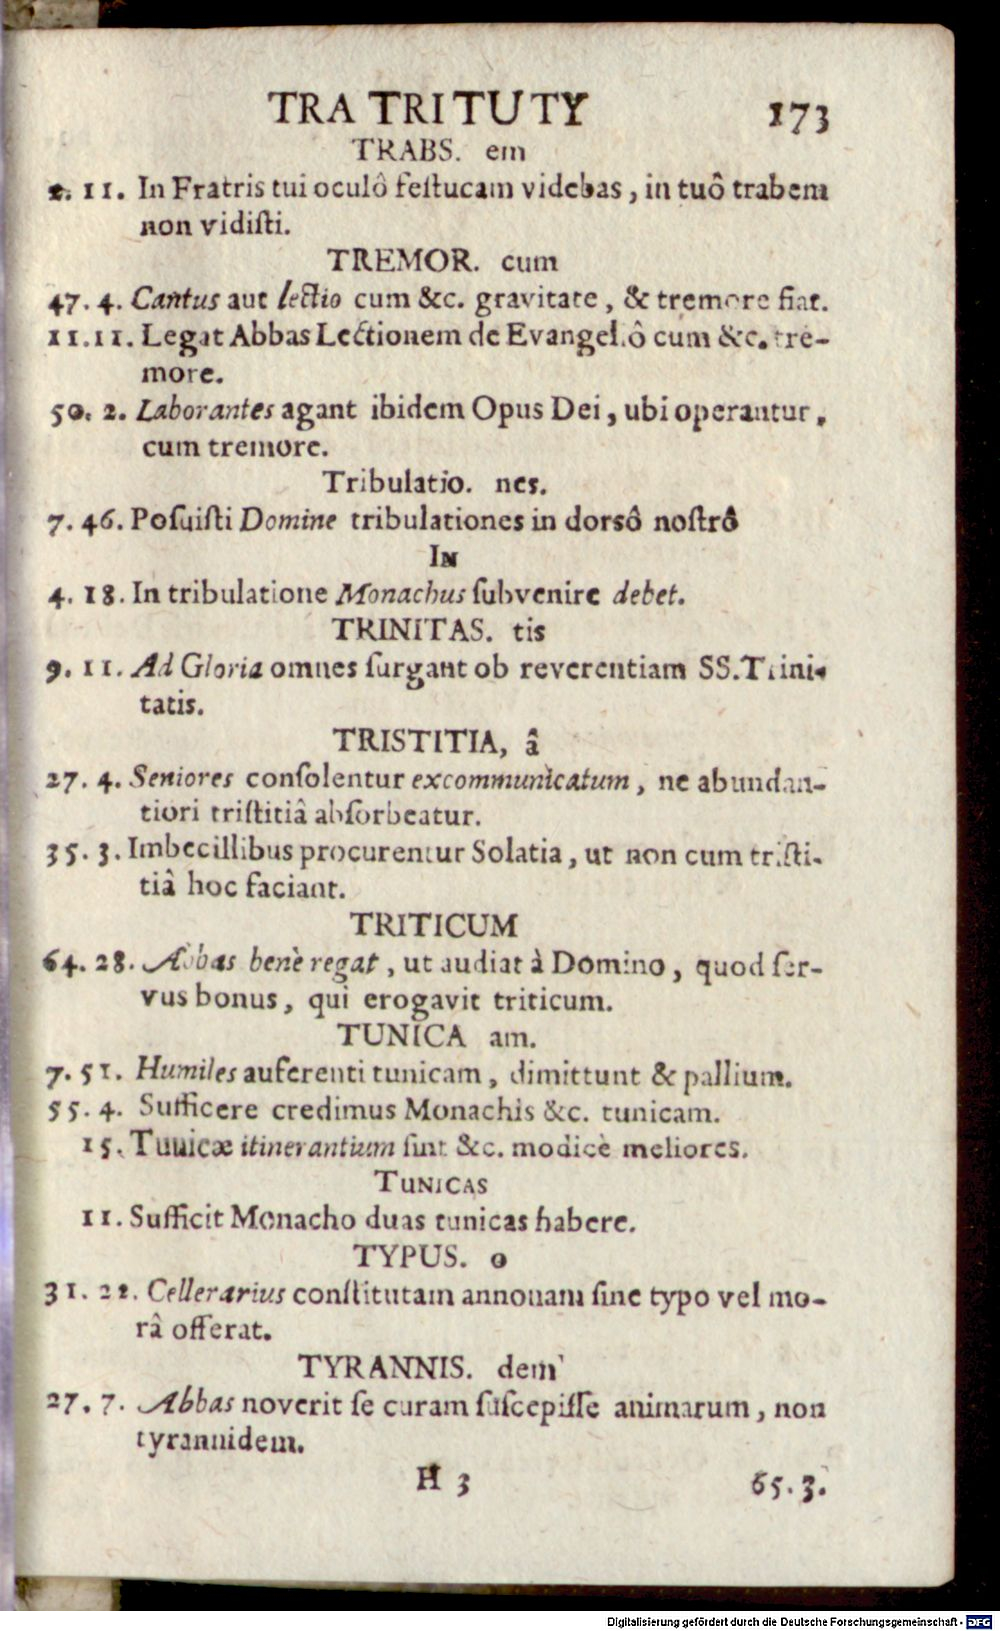 TRA TRI TU TY 173
TRABS. em
2. 11. In Fratris tui oculô festucam videbas, in tuô trabem
non vidisti.
TREMOR. cum
47. 4. Cantus aut lectio cum &c. gravitate, & tremore fiat.
11.11. Legat Abbas Lectionem de Evangeliô cum &c. tre-
more.
50. 2. Laborantes agant ibidem Opus Dei, ubi operantur,
cum tremore.
Tribulatio. nes.
7. 46. Posuisti Domine tribulationes in dorsô nostrô
IN
4. 18. In tribulatione Monachus subvenire debet.
TRINITAS. tis
9. 11. Ad Gloria omnes surgant ob reverentiam SS. Trini-
tatis.
TRISTITIA, â
27. 4. Seniores consolentur excommunicatum, ne abundan-
tiori tristitiâ absorbeatur.
35. 3. Imbecillibus procurentur Solatia, ut non cum tristi-
tiâ hoc faciant.
TRITICUM
64. 28. Abbas benè regat, ut audiat à Domino, quod ser-
vus bonus, qui erogavit triticum.
TUNICA am.
7. 51. Humiles auferenti tunicam, dimittunt & pallium.
55. 4. Sufficere credimus Monachis &c. tunicam.
15. Tunicæ itinerantium sint &c. modicè meliores.
TUNICAS
11. Sufficit Monacho duas tunicas habere.
TYPUS. o
31. 22. Cellerarius constitutam annonam sine typo vel mo-
râ offerat.
TYRANNIS. dem
27. 7. Abbas noverit se curam suscepisse animarum, non
tyrannidem.
H 3 65. 3.
Digitalisierung gefördert durch die Deutsche Forschungsgemeinschaft - DFG